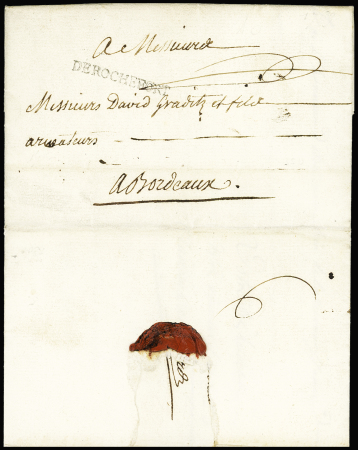 A Messieurs
DEROCHEFORT
Messieurs David Gradis et fils
armateurs
A Bordeaux.